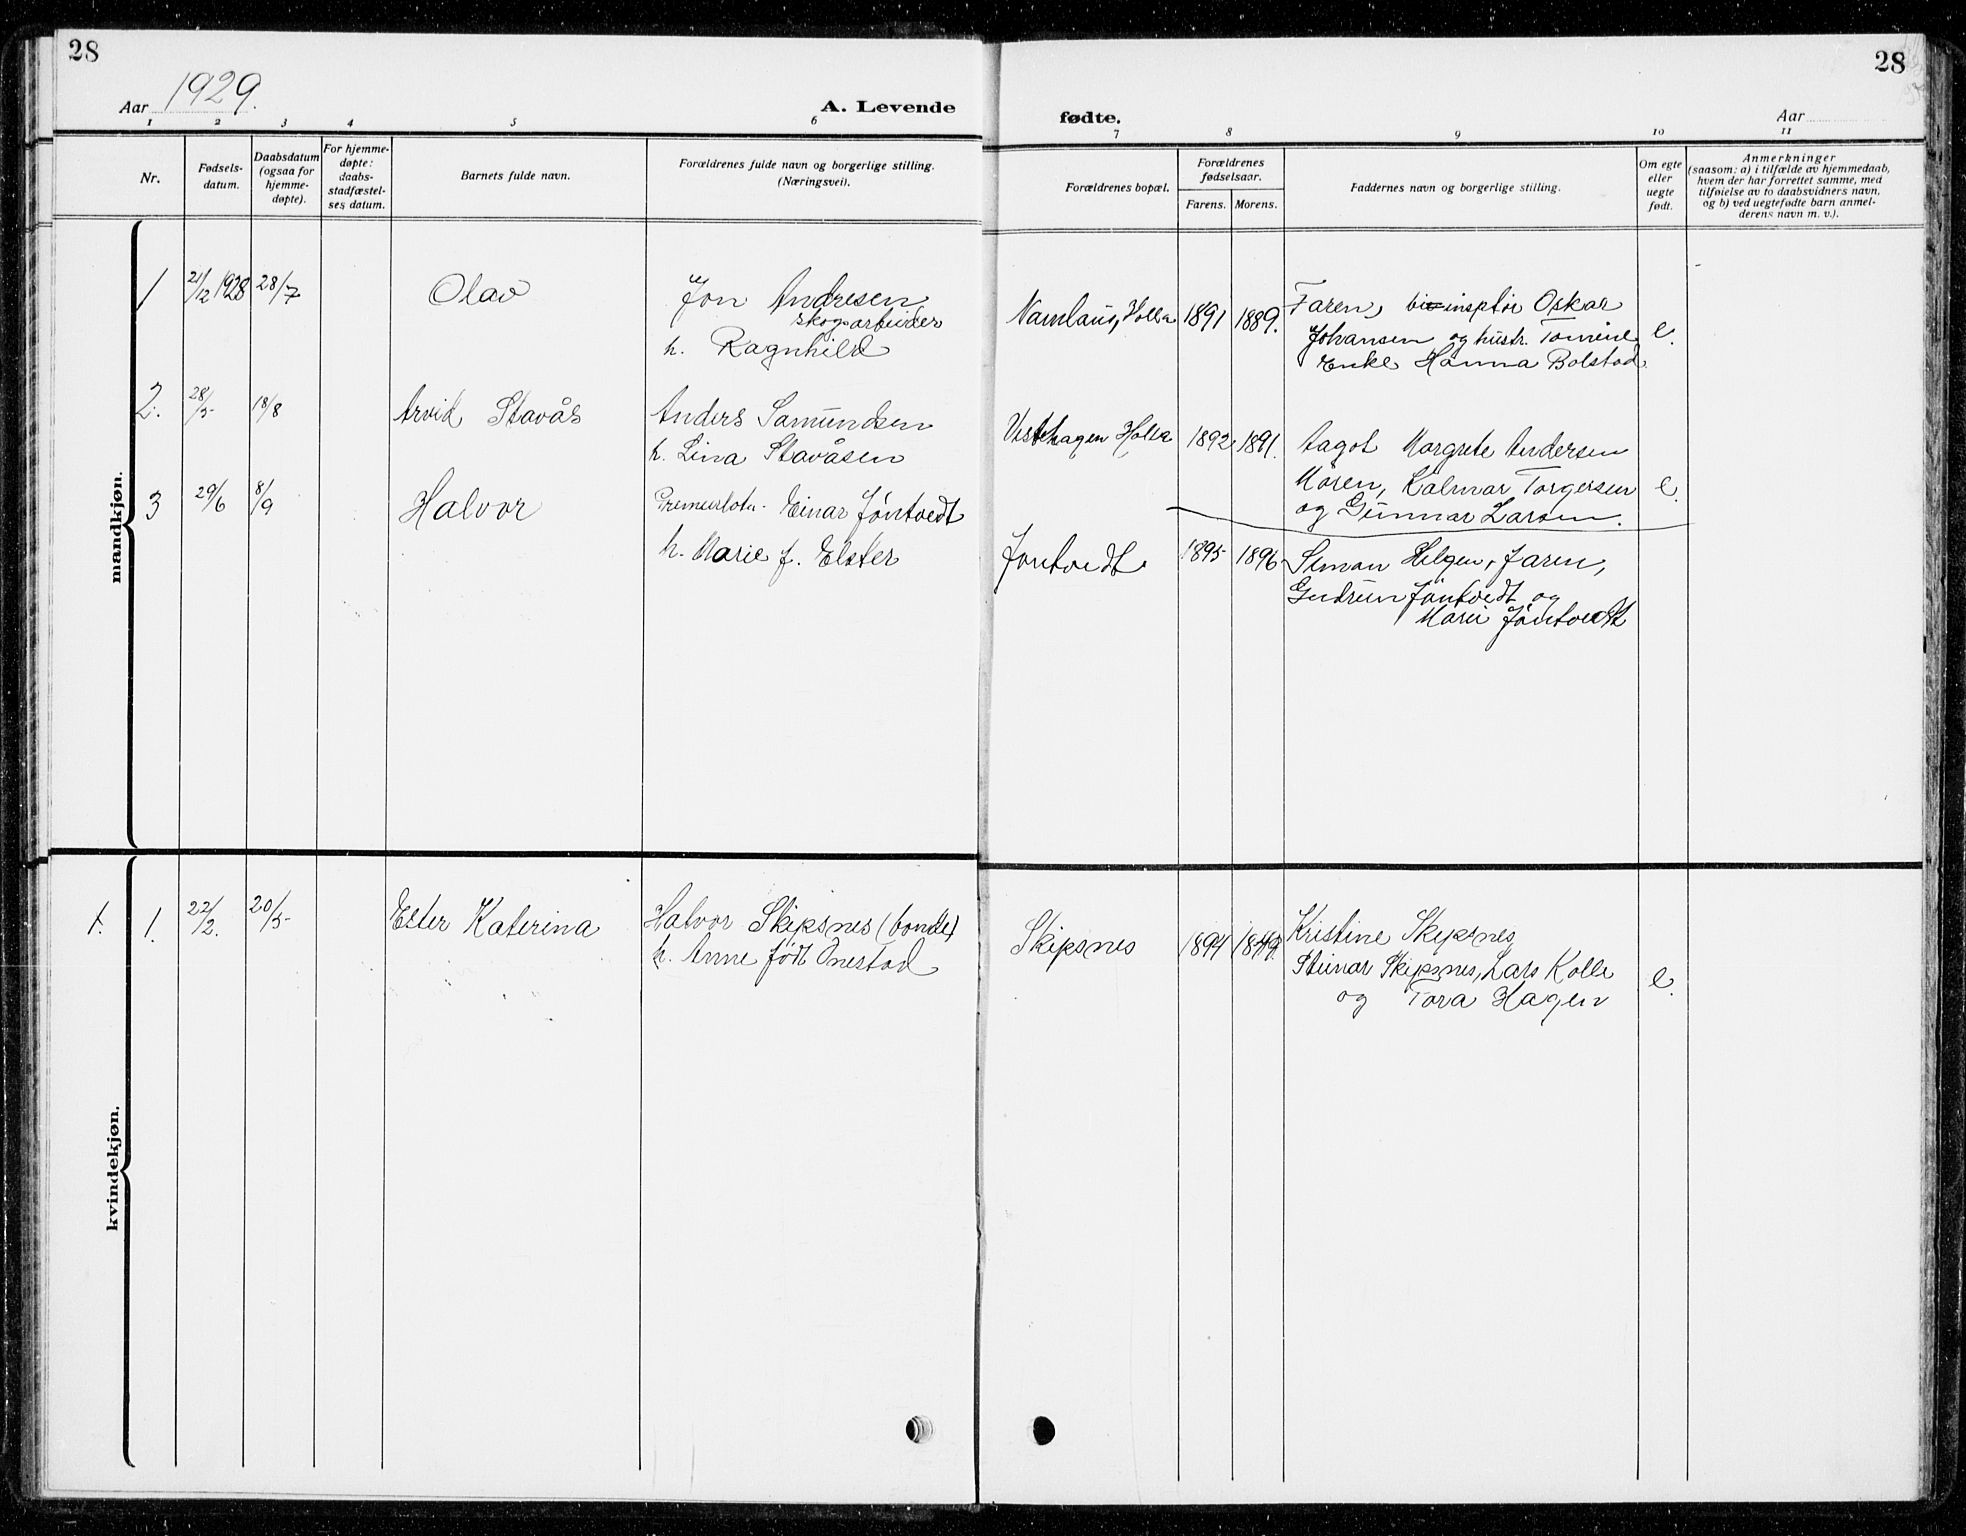 28
Aar 1929.
A. Levende
1 2 3 4 5 6
Nr.
Fødsels-
datum.
Daabsdatum
(ogsaa for
hjemme-
døpte).
For hjemme-
døpte:
daabs-
stadfæstel-
ses datum.
Barnets fulde navn.
Forældrenes fulde navn og borgerlige stilling.
(Næringsvei).
mandkjøn.
1 21/12 1928 28/7 Olav Jon Andresen,
skogsarbeider
h. Ragnhild
2. 28/5 18/8 Arvid Stavås Anders Samundsen
h. Lina Stavåsen
3 29/6 8/9 Halvor Einar Jøntvedt
h. Marie f. Elster
kvindekjøn.
1. 1. 22/2. 20/5 Ester Katerina Halvor Skipsnes (bonde)
h. Anne født Onestad
28
fødte.
Aar
7 8 9 10 11
Forældrenes bopæl.
Forældrenes
fødselsaar.
Farens. Morens.
Faddernes navn og borgerlige stilling.
Om egte
eller
uegte
født.
Anmerkninger
(saasom: a) i tilfælde av hjemmedaab,
hvem der har forrettet samme, med
tilføielse av to daabsvidners navn,
og b) ved uegtefødte barn anmel-
derens navn m. v.).
Namlaus, Holla 1891 1889. Faren, insptør Oskar
Johansen og hustr. Tomine e.
Enke Hanna Bolstad.
Vestehagen Holla 1892 1891. Aagot Margrete Andersen
Moren, Kalmar Torgersen e.
og Gunnar Larsen.
Jøntvedt 1895 1896 Simon Helgen, Faren,
Gudrun Jøntvedt og
Marie Jøntvedt
Skipsnes 1894 Kristine Skipsnes,
Steinar Skipsnes, Lars Kolle e.
og Tora Hagen